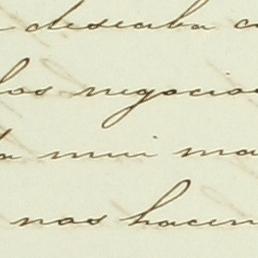 deseaba
los negocios
mui
nos hacen